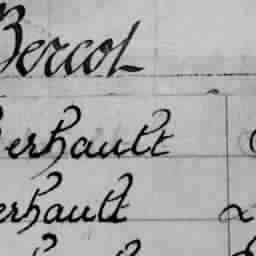 Bercot
erhault
erhault